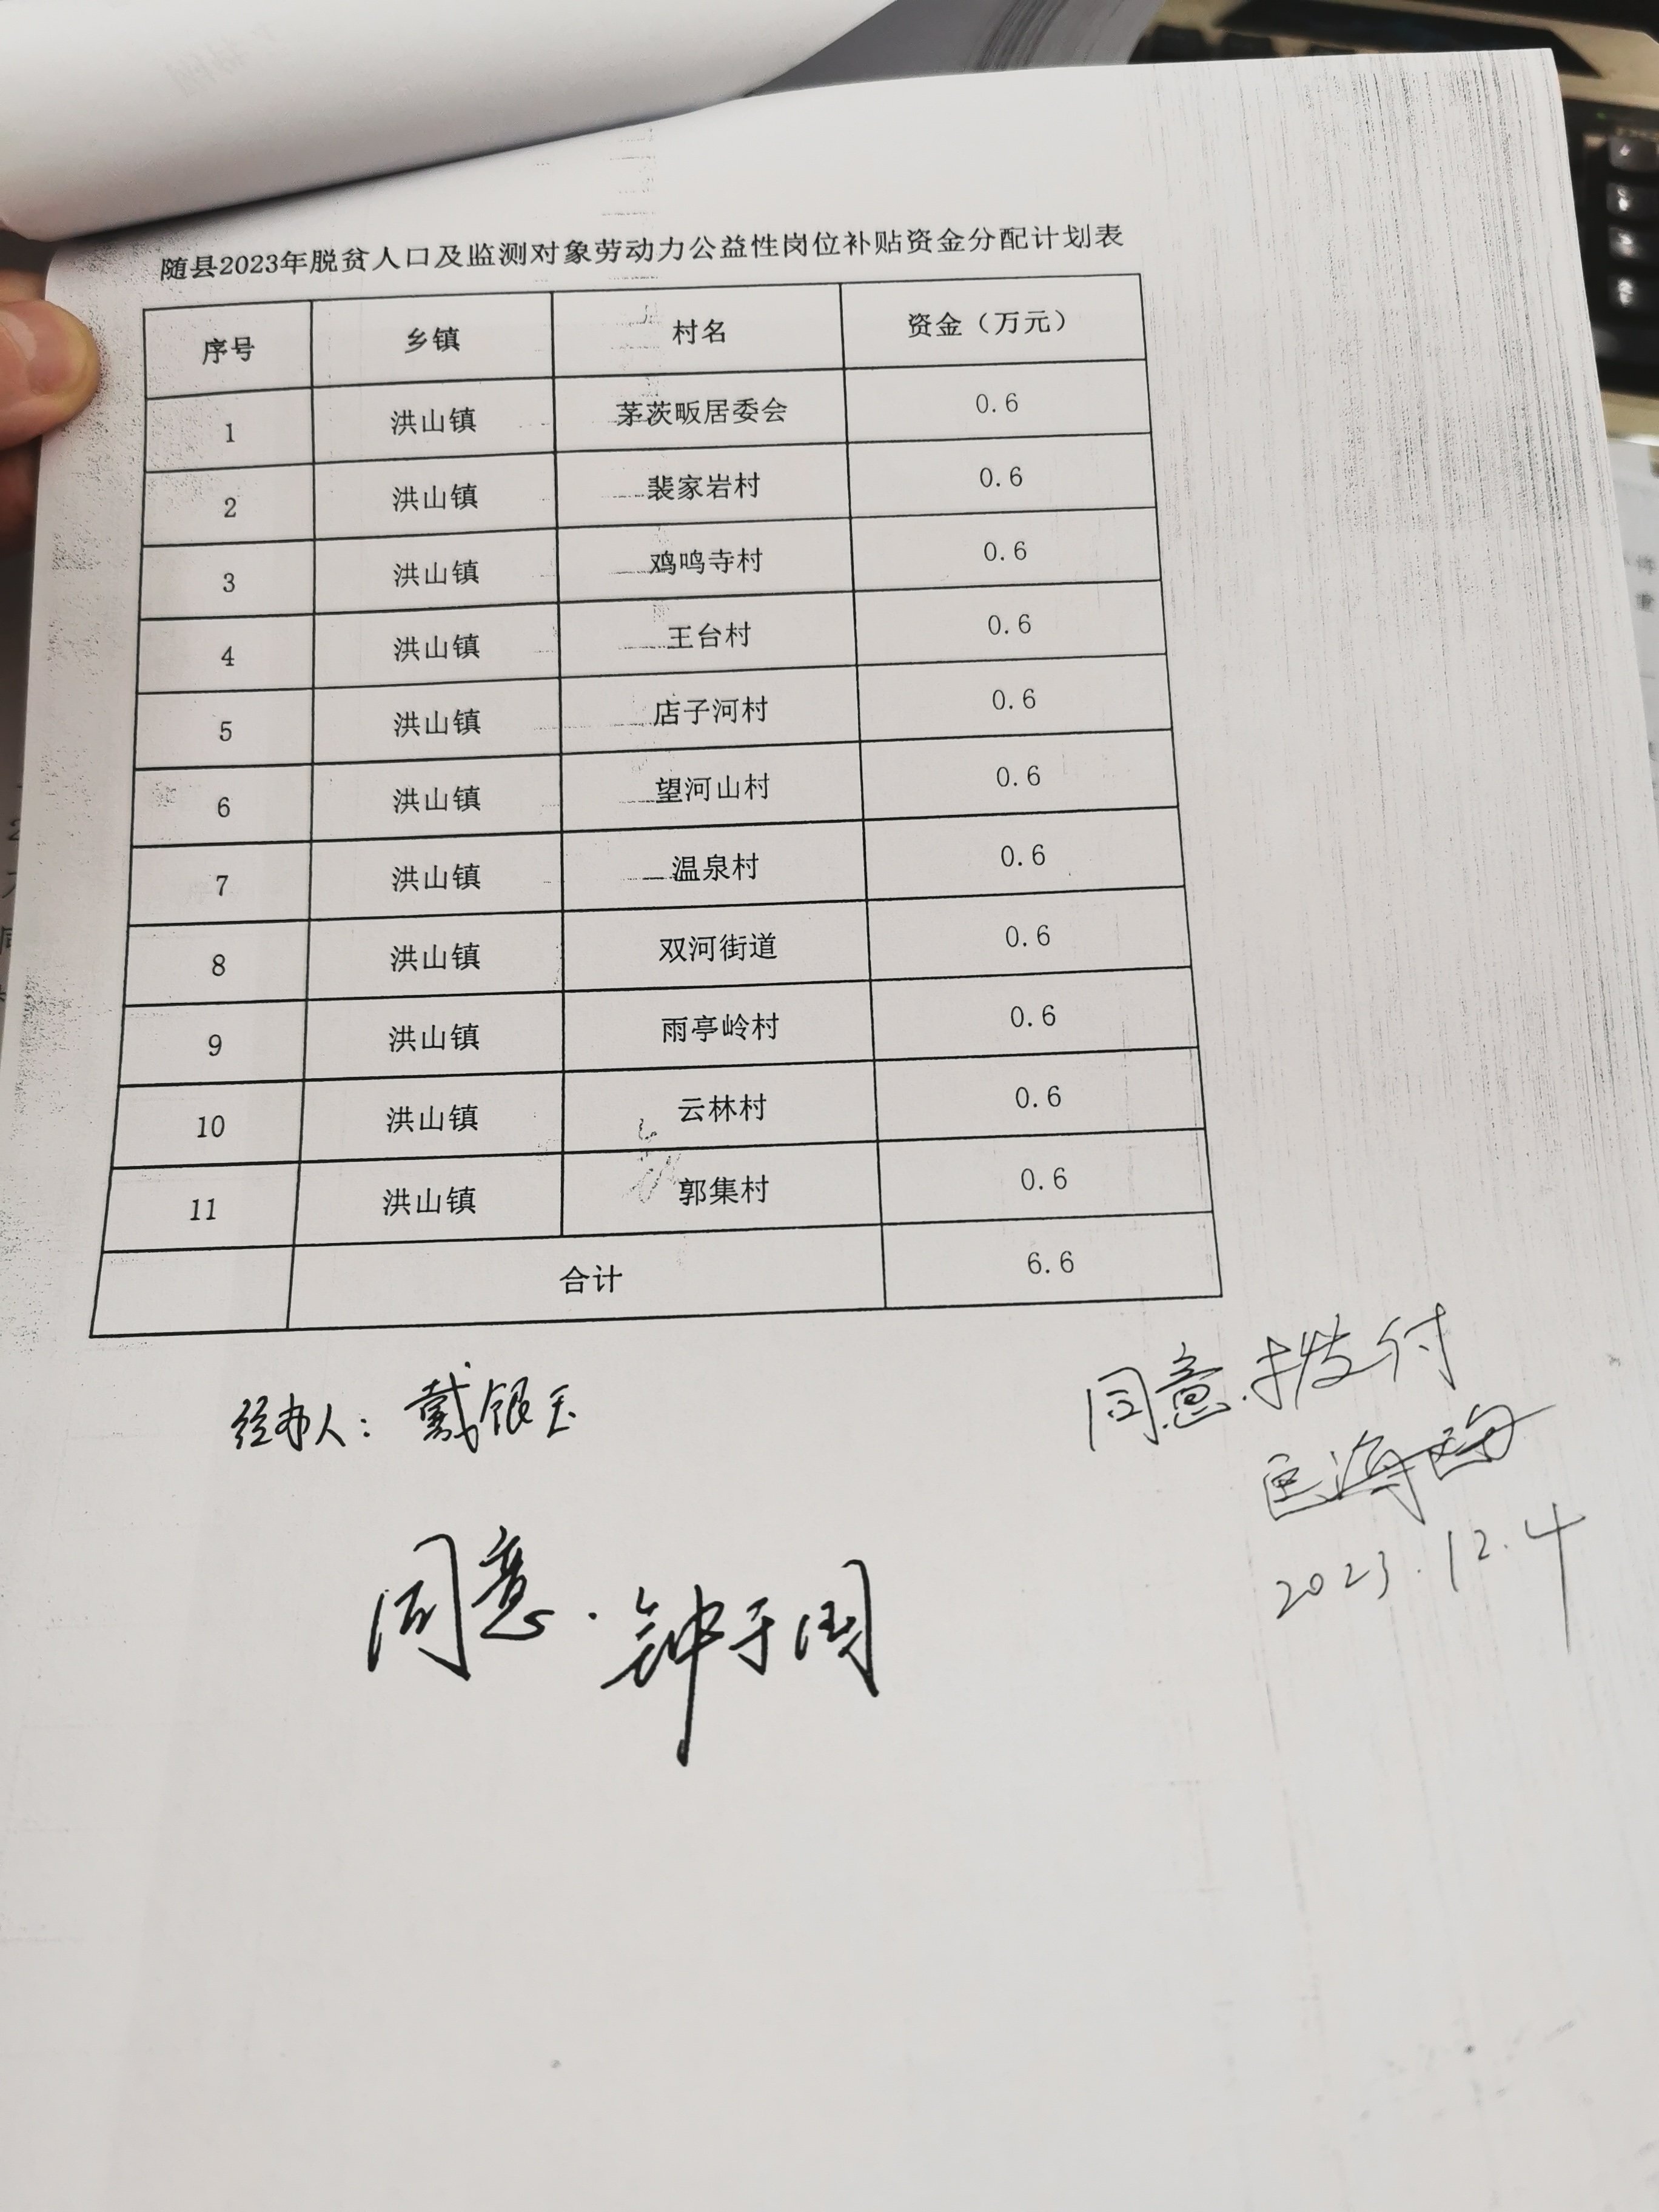 随县2023年脱贫人口及监测对象劳动力公益性岗位补贴资金分配计划表
序号 乡镇 村名 资金（万元）
1 洪山镇 茅茨畈居委会 0.6
2 洪山镇 裴家岩村 0.6
3 洪山镇 鸡鸣寺村 0.6
4 洪山镇 王台村 0.6
5 洪山镇 店子河村 0.6
6 洪山镇 望河山村 0.6
7 洪山镇 温泉村 0.6
8 洪山镇 双河街道 0.6
9 洪山镇 雨亭岭村 0.6
10 洪山镇 云林村 0.6
11 洪山镇 郭集村 0.6
合计 6.6
经办人：戴银玉
同意.拨付
2023.12.4
同意.钟于国